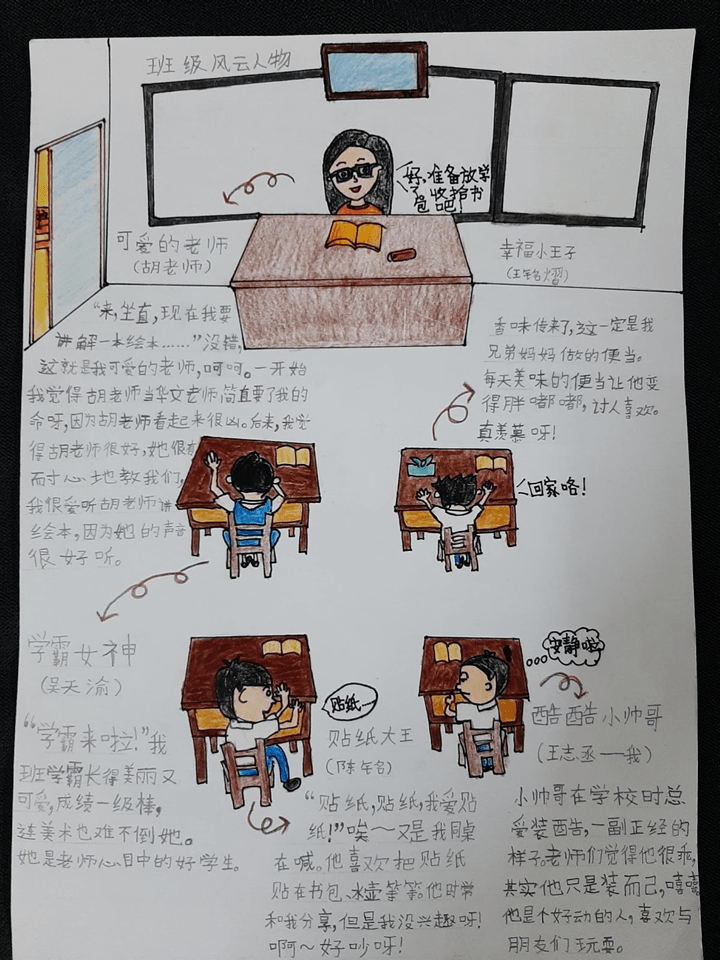 班级风云人物
好,准备放学
了,收拾书
包吧!
可爱的老师
(胡老师)
"来,坐直,现在我要
讲解一本绘本……"没错,
这就是我可爱的老师,呵呵。一开始
我觉得胡老师当华文老师,简直要了我的
命呀,因为胡老师看起来很凶。后来,我觉
得胡老师很好,她很有
而寸心地教我们,
我很爱听胡老师讲
绘本,因为她的声音
很好听。
幸福小王子
香味传来了,这一定是我
兄弟妈妈做的便当。
每天美味的便当让他变
得胖嘟嘟,讨人喜欢。
真羡慕呀!
回家咯!
学霸女神
(吴天渝)
"学霸来啦!"我
班学霸长得美丽又
可爱,成绩一级棒,
连美术也难不倒她。
她是老师心目中的好学生。
贴纸…
贴纸大王
"贴纸,贴纸,我爱贴
纸!"唉~又是我同桌
在喊。他喜欢把贴纸
贴在书包、水壶等等。他时常
和我分享,但是我没兴趣呀!
啊~好吵呀!
安静啦
酷酷小帅哥
(王志丞——我)
小帅哥在学校时总
爱装酷,一副正经的
样子。老师们觉得他很乖,
其实他只是装而已,嘻嘻
他是个好动的人,喜欢与
朋友们玩耍。